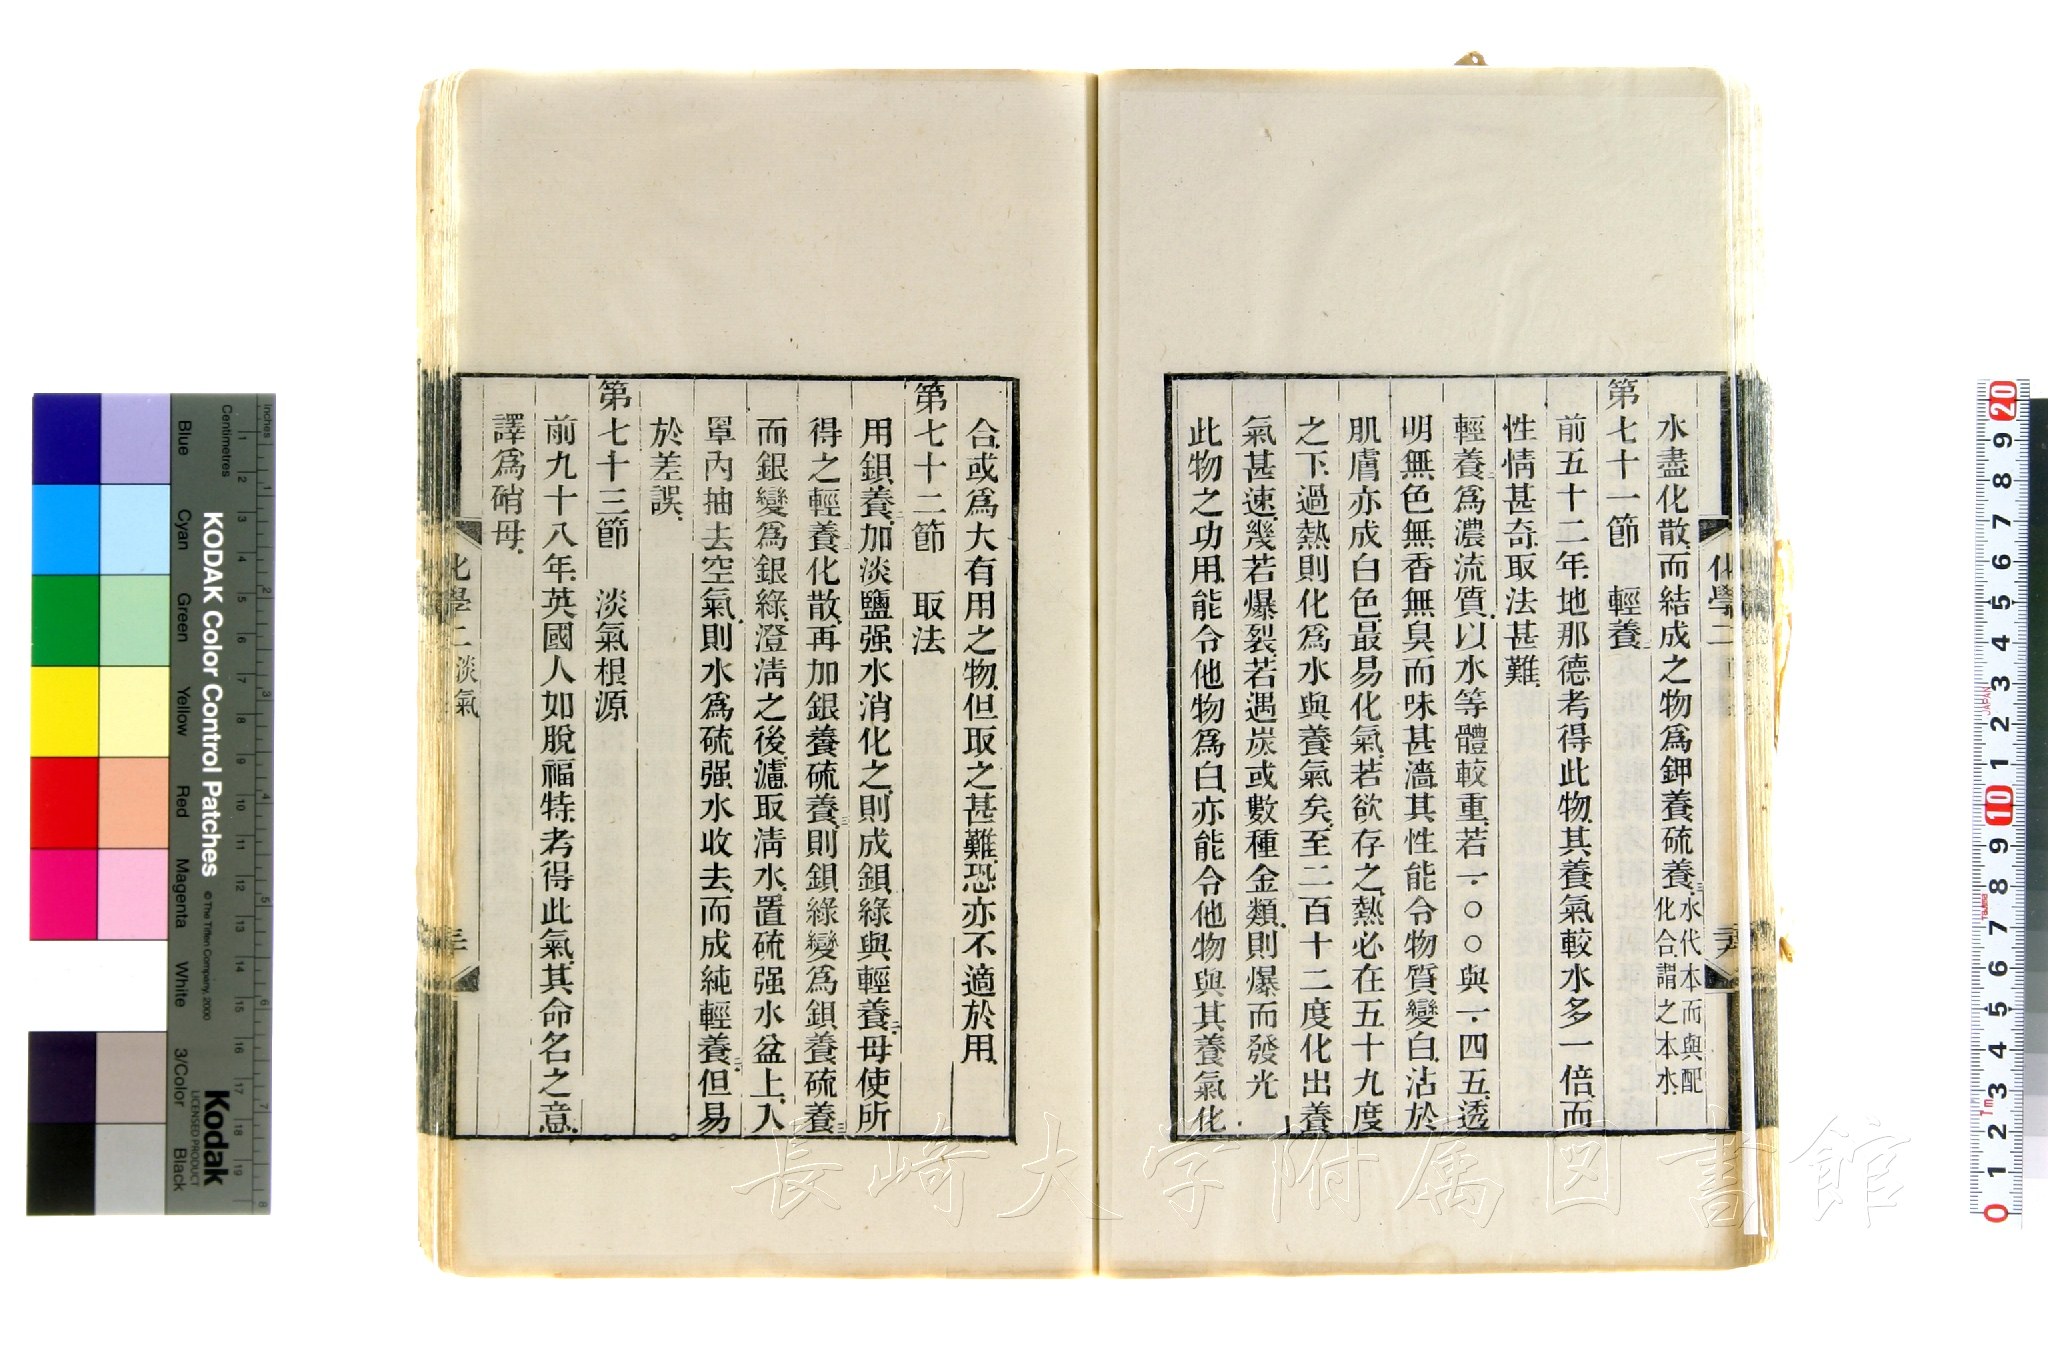 水盡化散、而結成之物、爲鉀養硫養三、水代本而與配
化合、謂之本水、
第七十一節　輕養二
前五十二年、地那德考得此物、其養氣較水多一倍、而
性情甚奇、取法甚難、
輕養二爲濃流質、以水等體較重、若一·〇〇與一·四五、透
明無色無香無臭而味甚濇、其性能令物質變白、沾於
肌膚亦成白色、最易化氣、若欲存之、熱必在五十九度
之下、過熱則化爲水與養氣矣、至二百十二度、化出養
氣甚速、幾若爆裂、若遇炭或數種金類、則爆而發光、
此物之功用、能令他物爲白、亦能令他物與其養氣化
合、或爲大有用之物、但取之甚難、恐亦不適於用、
第七十二節　取法
用鋇養二、加淡鹽强水消化之、則成鋇綠與輕養二、毋使所
得之輕養二化散、再加銀養硫養三、則鋇綠變爲鋇養硫養三
而銀變爲銀綠、澄淸之後、濾取淸水、置硫强水盆上、入
罩內抽去空氣、則水爲硫强水收去、而成純輕養二、但易
於差誤、
第七十三節　淡氣根源
前九十八年、英國人如脫福特、考得此氣、其命名之意、
譯爲硝母、
化學二
化學二 淡氣
長崎大学附属図書館
KODAK Color Control Patches
© The Tiffen Company, 2000
Kodak
LICENSED PRODUCT
Inches
Centimetres
Blue
Cyan
Green
Yellow
Red
Magenta
White
3/Color
Black
1 2 3 4 5 6 7 8 9 10 11 12 13 14 15 16 17 18 19
1 2 3 4 5 6 7 8
20 9 8 7 6 5 4 3 2 1 10 9 8 7 6 5 4 3 2 1 0
JAPAN
7m